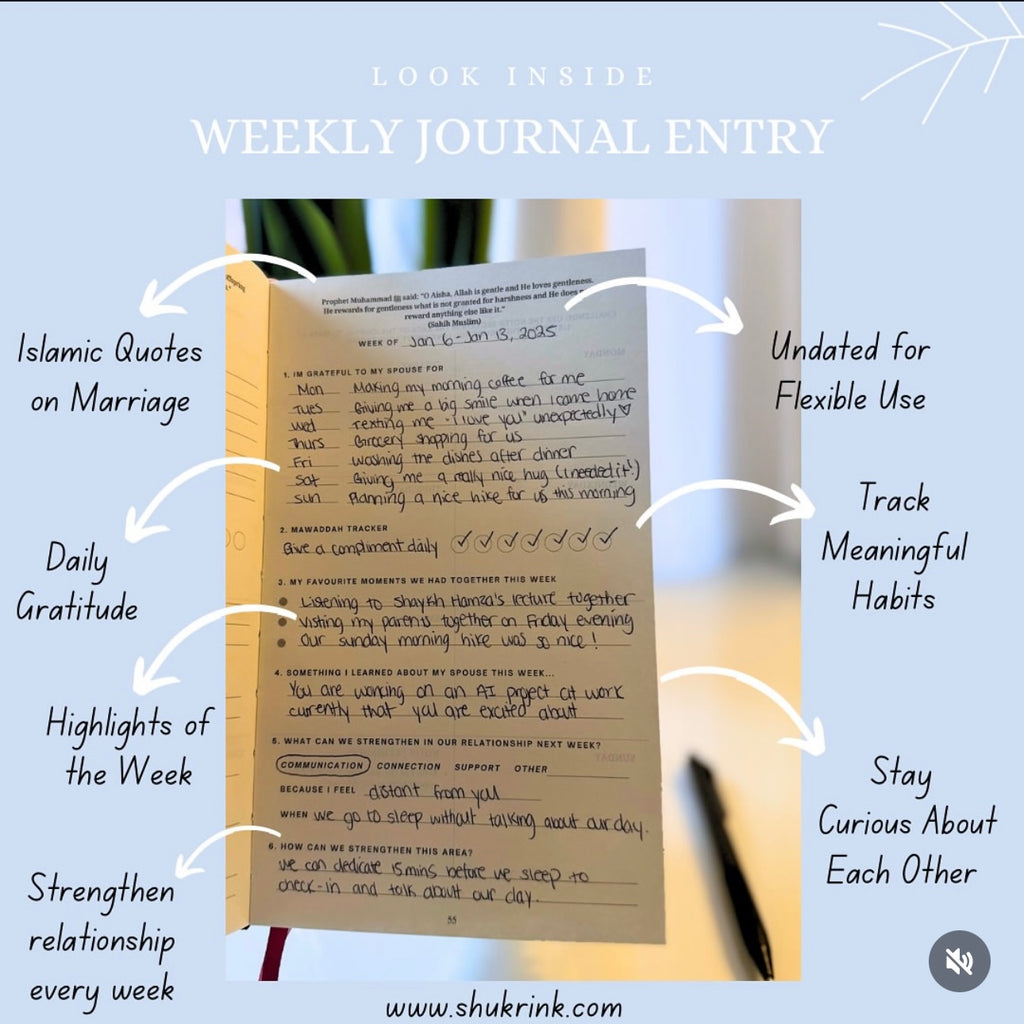 LOOK INSIDE
WEEKLY JOURNAL ENTRY
Islamic Quotes
on Marriage
Daily
Gratitude
Highlights of
the Week
Strengthen
relationship
every week
Prophet Muhammad ﷺ said: "O Aisha, Allah is gentle and He loves gentleness.
He rewards for gentleness what is not granted for harshness and He does
reward anything else like it."
(Sahih Muslim)
WEEK OF Jan 6 - Jan 13, 2025
1. IM GRATEFUL TO MY SPOUSE FOR
Mon Making my morning coffee for me
Tues Giving me a big smile when I came home
Wed Texting me "I love you" unexpectedly♡
Thurs Grocery shopping for us
Fri washing the dishes after dinner
Sat Giving me a really nice hug (I needed it!)
Sun Planning a nice hike for us this morning
2. MAWADDAH TRACKER
Give a compliment daily ✓ ✓ ✓ ✓ ✓ ✓ ✓
3. MY FAVOURITE MOMENTS WE HAD TOGETHER THIS WEEK
• Listening to Shaykh Hamza's lecture together
• Visting my parents together on Friday evening
• Our sunday morning hike was so nice!
4. SOMETHING I LEARNED ABOUT MY SPOUSE THIS WEEK...
You are working on an AI project at work
currently that you are excited about
5. WHAT CAN WE STRENGTHEN IN OUR RELATIONSHIP NEXT WEEK?
COMMUNICATION CONNECTION SUPPORT OTHER
BECAUSE I FEEL distant from you
WHEN we go to sleep without talking about our day.
6. HOW CAN WE STRENGTHEN THIS AREA?
we can dedicate 15mins before we sleep to
check-in and talk about our day.
55
Undated for
Flexible Use
Track
Meaningful
Habits
Stay
Curious About
Each Other
www.shukrink.com